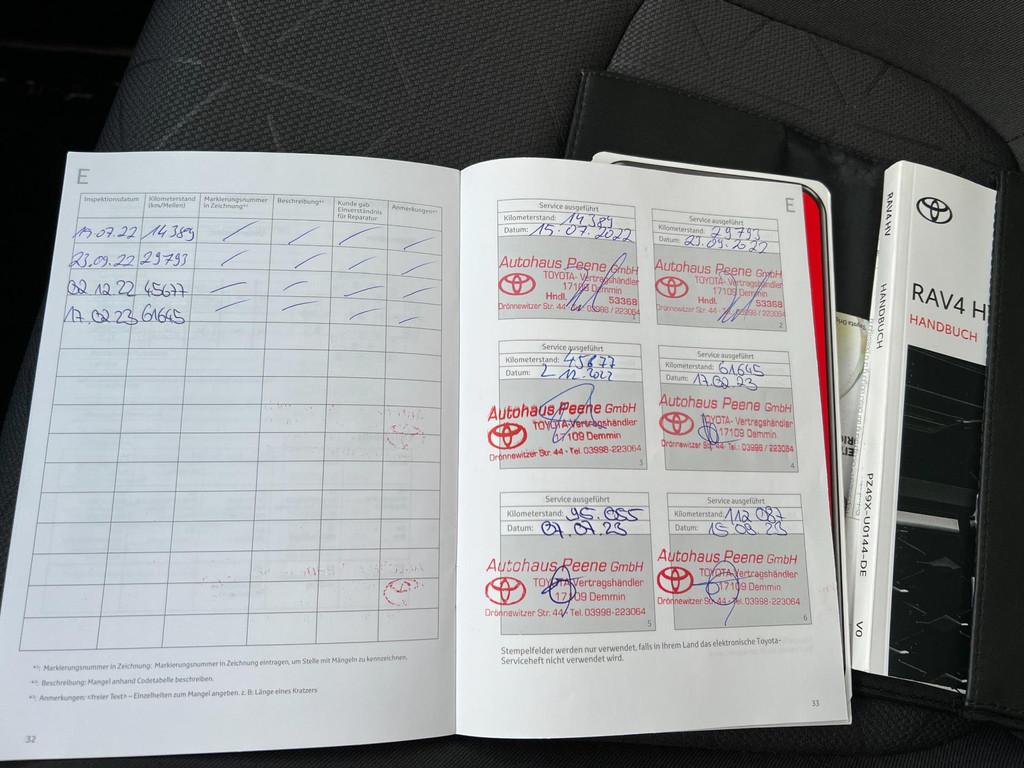 E
Inspektionsdatum Kilometerstand (km/Meilen) Markierungsnummer in Zeichnung*¹⁾ Beschreibung*²⁾ Kunde gab Einverständnis für Reparatur Anmerkungen*³⁾
22 14389
23.09.22 29793
02.12.22 45677
17.02.23 61645
*¹⁾: Markierungsnummer in Zeichnung: Markierungsnummer in Zeichnung eintragen, um Stelle mit Mängeln zu kennzeichnen.
*²⁾: Beschreibung: Mangel anhand Codetabelle beschreiben.
*³⁾: Anmerkungen: <freier Text> – Einzelheiten zum Mangel angeben. z. B: Länge eines Kratzers
32
E
Service ausgeführt
Kilometerstand: 14389
Datum: 15.07.2022
Autohaus Peene GmbH
TOYOTA-Vertragshändler
17109 Demmin
Hndl. 53368
Drönnewitzer Str. 44 · 03998 / 223064
1
Service ausgeführt
Kilometerstand: 29793
Datum: 23.09.2022
Autohaus Peene GmbH
TOYOTA-Vertragshändler
17109 Demmin
Hndl. 53368
Drönnewitzer Str. 44 · 03998 / 223064
2
Service ausgeführt
Kilometerstand: 45677
Datum: 2.12.2022
Autohaus Peene GmbH
TOYOTA-Vertragshändler
17109 Demmin
Drönnewitzer Str. 44 · Tel. 03998-223064
3
Service ausgeführt
Kilometerstand: 61645
Datum: 17.02.23
Autohaus Peene GmbH
TOYOTA-Vertragshändler
17109 Demmin
Drönnewitzer Str. 44 · Tel.: 03998 / 223064
4
Service ausgeführt
Kilometerstand: 95.055
Datum: 07.07.23
Autohaus Peene GmbH
TOYOTA-Vertragshändler
17109 Demmin
Drönnewitzer Str. 44 · Tel. 03998-223064
5
Service ausgeführt
Kilometerstand: 112.087
Datum: 15.08.23
Autohaus Peene GmbH
TOYOTA-Vertragshändler
17109 Demmin
Drönnewitzer Str. 44 · Tel. 03998-223064
6
Stempelfelder werden nur verwendet, falls in Ihrem Land das elektronische Toyota-
Serviceheft nicht verwendet wird.
33
RAV4 HV HANDBUCH PZ49X-U0144-DE V0
RAV4 H
HANDBUCH